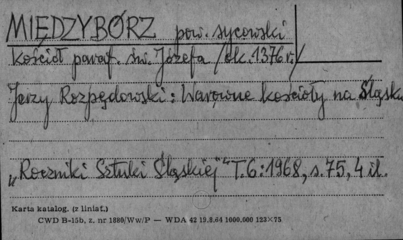 MIĘDZYBÓRZ pow. sycowski
kościół paraf. św. Józefa /ok. 1376 r./
Jerzy Rozpędowski: Warowne kościoły na Śląsku
„Roczniki Sztuki Śląskiej" T.6: 1968, s. 75, 4 il.
Karta katalog. (z liniat.)
CWD B-15b, z. nr 1880/Ww/P — WDA 42 19.8.64 1000.500 123×75